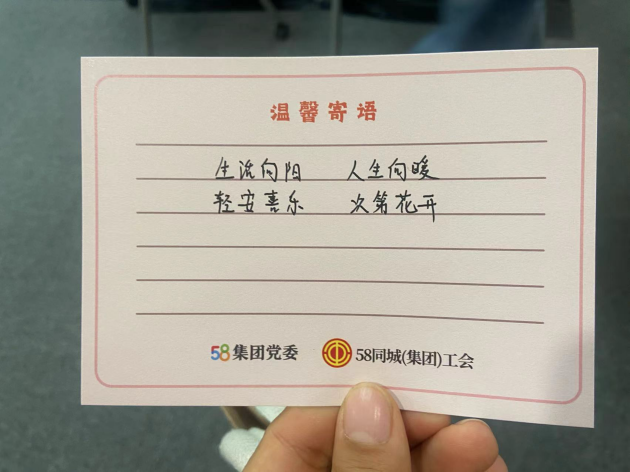 温馨寄语
生流向阳 人生向暖
轻安喜乐 次第花开
58集团党委 58同城(集团)工会